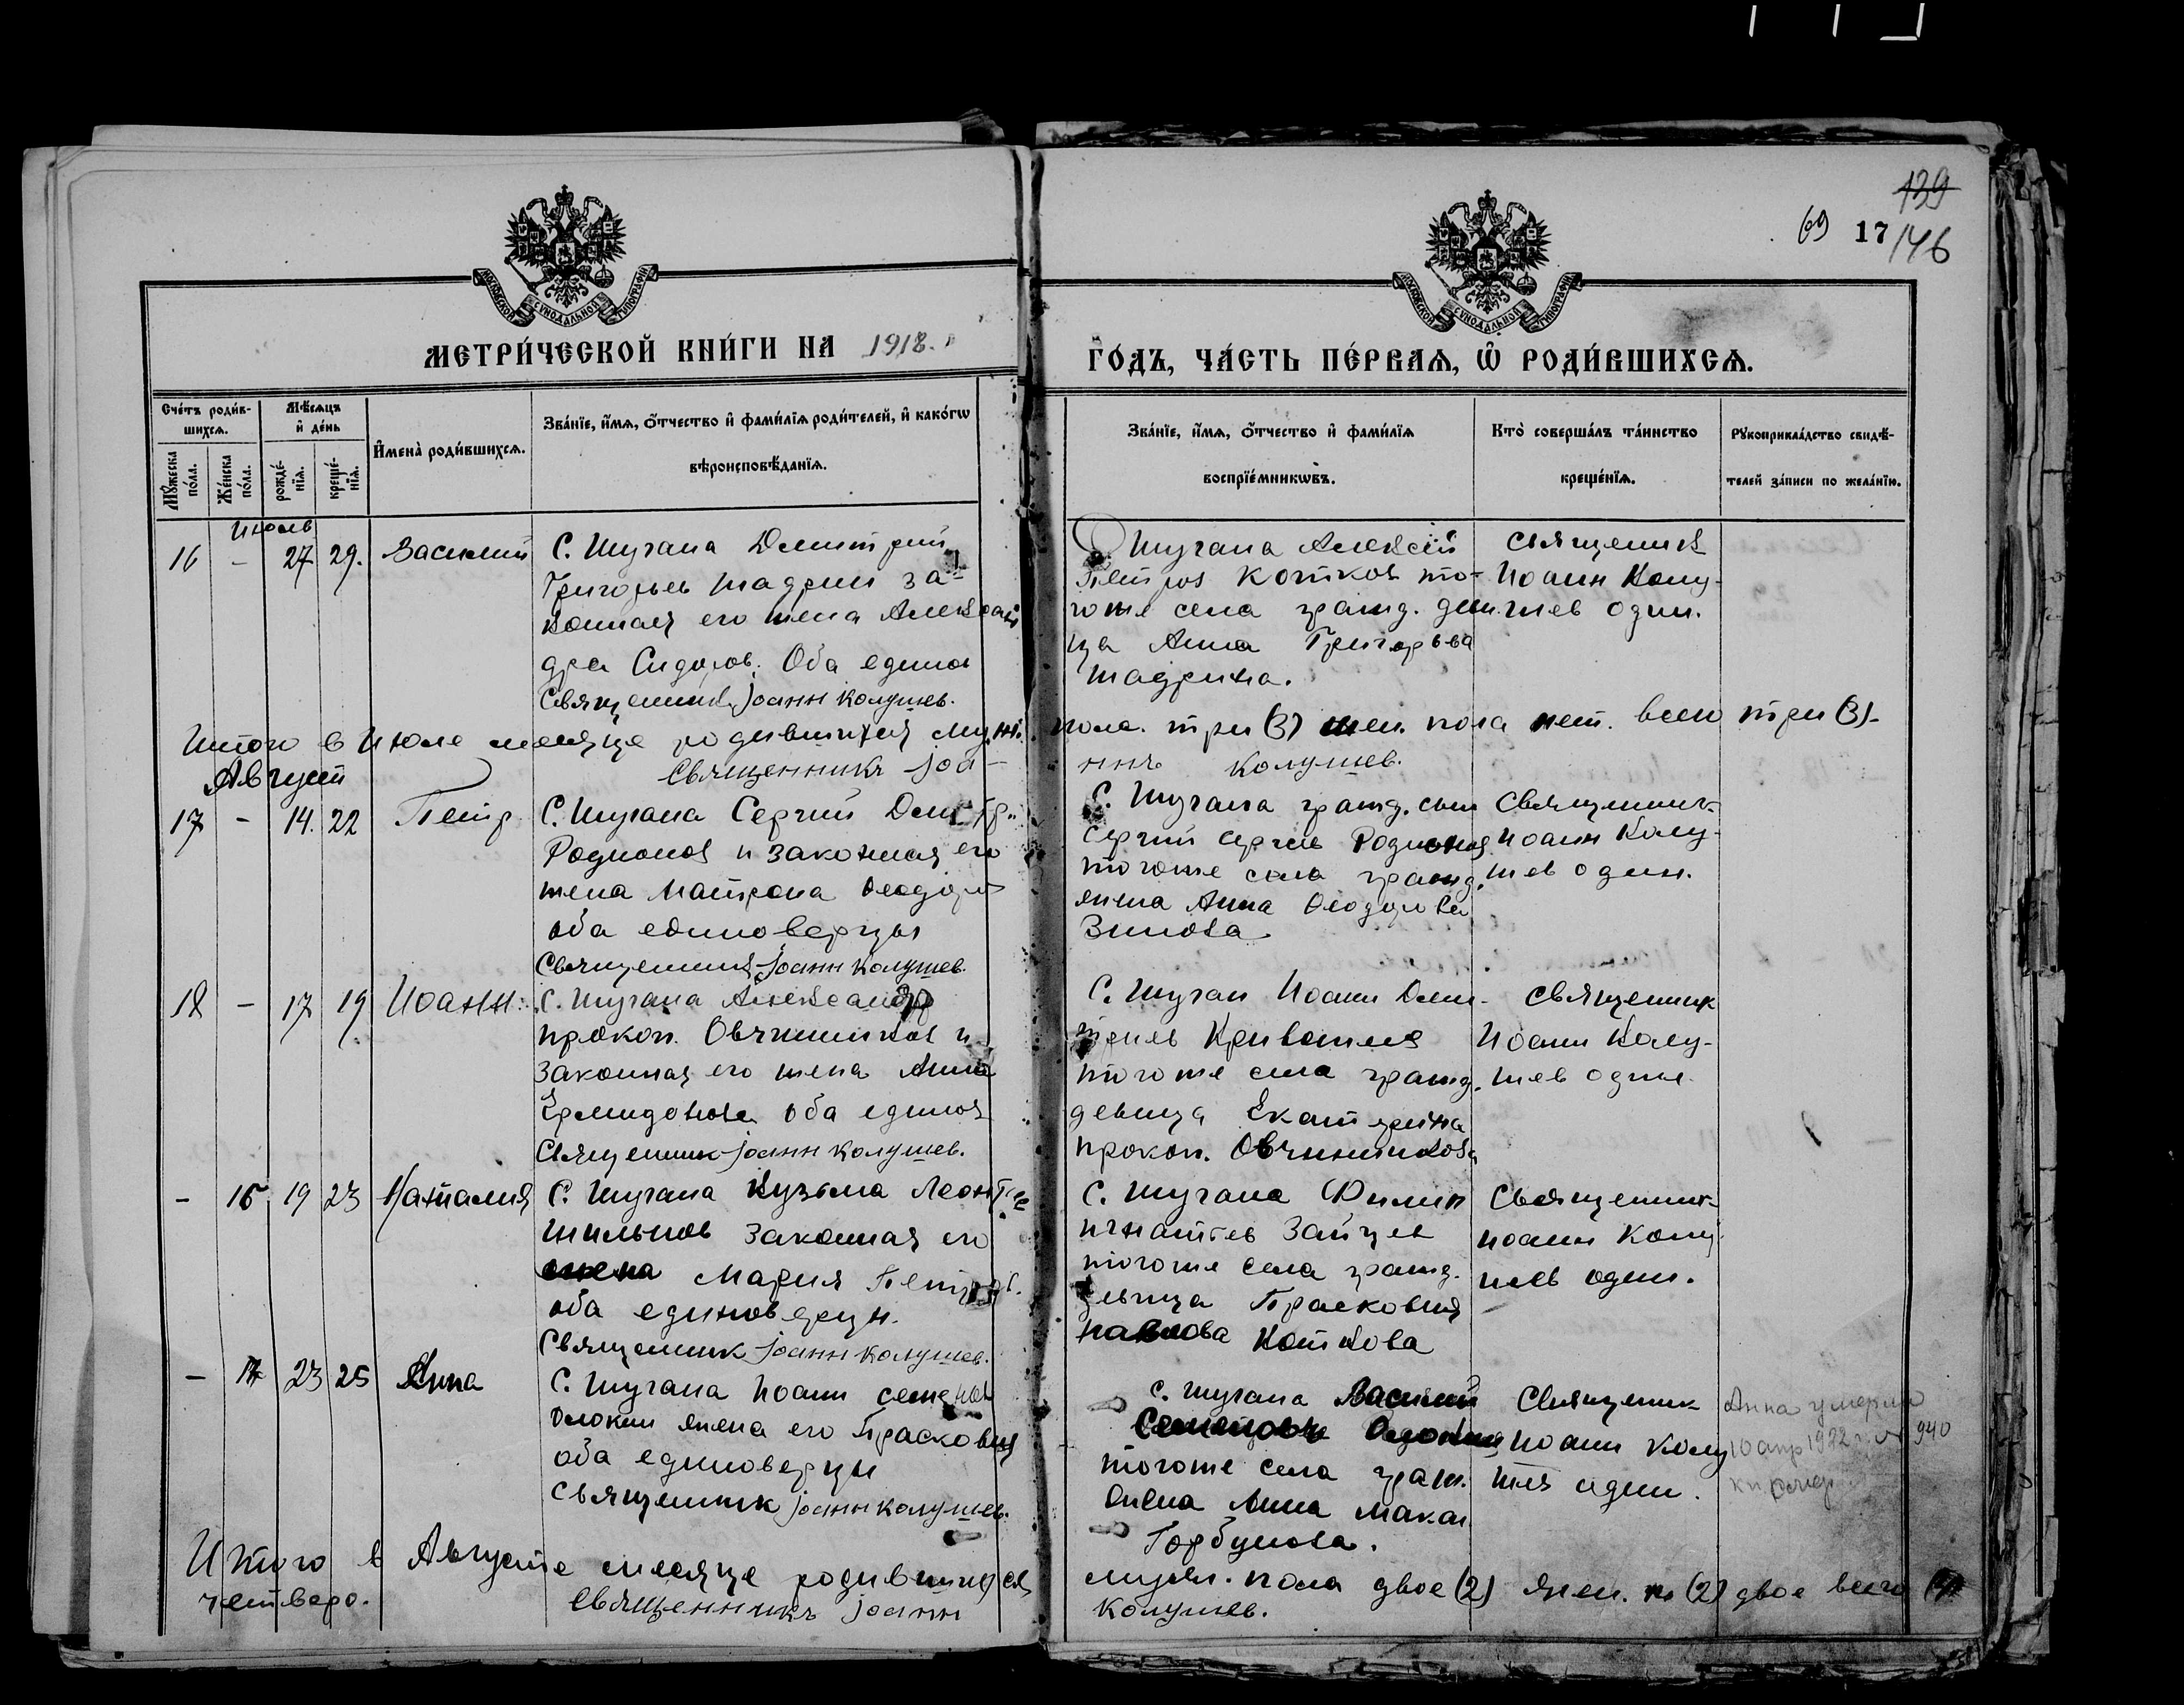 139
69 17 146
МОСКОВСКОЙ СѴНОДАЛЬНОЙ ТИПОГРАФІИ
МОСКОВСКОЙ СѴНОДАЛЬНОЙ ТИПОГРАФІИ
МЕТРИ́ЧЕСКОЙ КНИ́ГИ НА 1918.
ГО́ДЪ, ЧА́СТЬ ПЕ́РВАѦ, Ѽ РОДИ́ВШИХСѦ.
Сче́тъ роди́в-
шихсѧ.
Мѣ́сѧцъ
и҆ де́нь
Мꙋ́жеска по́ла.
Же́нска по́ла.
рожде́-
нїѧ.
креще́-
нїѧ.
И҆мена̀ роди́вшихсѧ.
Зва́нїе, и҆́мѧ, ѻ҆́тчество и҆ фами́лїѧ роди́телей, и҆ како́гѡ
вѣроисповѣ́данїѧ.
Зва́нїе, и҆́мѧ, ѻ҆́тчество и҆ фами́лїѧ
воспрїе́мникѡвъ.
Кто̀ соверша́лъ та́инство
креще́нїѧ.
Рꙋкоприкла́дство свидѣ́-
телей за́писи по жела́нїю.
Июль
16 - 27 29. Василий
С. Шугана Димитрий
Григорьев Шадрин за-
конная его жена Алексан
дра Сидоров. Оба единов
Священник Іоанн Колушев.
Шугана Алексій
Петров Котков то-
гоже села гражд. дев
ца Анна Григорьва
Шадрина.
Священник
Иоанн Колу-
шев один.
Итого в Июле месяце родившихся муж. пола. три (3) жен. пола нет. всего три (3)-
Священникъ Іоа-
ннъ Колушев.
Август
17 - 14. 22 Петр
С. Шугана Сергий Димитр.
Родионов и законная его
жена Матрона Феодоров
оба единоверцы
Священник Іоанн Колушев.
С. Шугана гражд. сын
Сергий Сергиев Родионов
тогоже села гражд.
жена Анна Феодорова
Зимова
Священник
Иоанн Колу-
шев один.
18 - 17 19 Иоанн.
С. Шугана Александр
Прокоп. Овчинников и
законная его жена Анна
оба единов
Священник Іоанн Колушев.
С. Шуган Иоанн Дими-
триев
тогоже села гражд.
девица Екатерина
Прокоп. Овчинникова
Священник
Иоанн Колу-
шев один.
- 16 19 23 Наталия
С. Шугана Кузьма Леонтие
Шильнов законная его
жена Мария Петров.
оба единоверцы.
Священник Іоанн Колушев.
С. Шугана Филип
Игнатьев Зайцев
тогоже села гражд.
девица Прасковия
Павлова Коткова
Священник
Иоанн Колу-
шев один.
- 17 23 25 Анна
С. Шугана Иоанн Семенов
жена его Прасковия
оба единоверцы
Священник Іоанн Колушев.
С. Шугана Василий
Семеновъ
тогоже села граж.
жена Анна Макар
Горбунова.
Священник
Иоанн Колу
шев один.
Анна умерла
10 апр
Итого в Августе месяце родившихся муж. пола двое (2) жен. п. (2) двое всего (4)
четверо.
Священникъ Іоанн
Колушев.